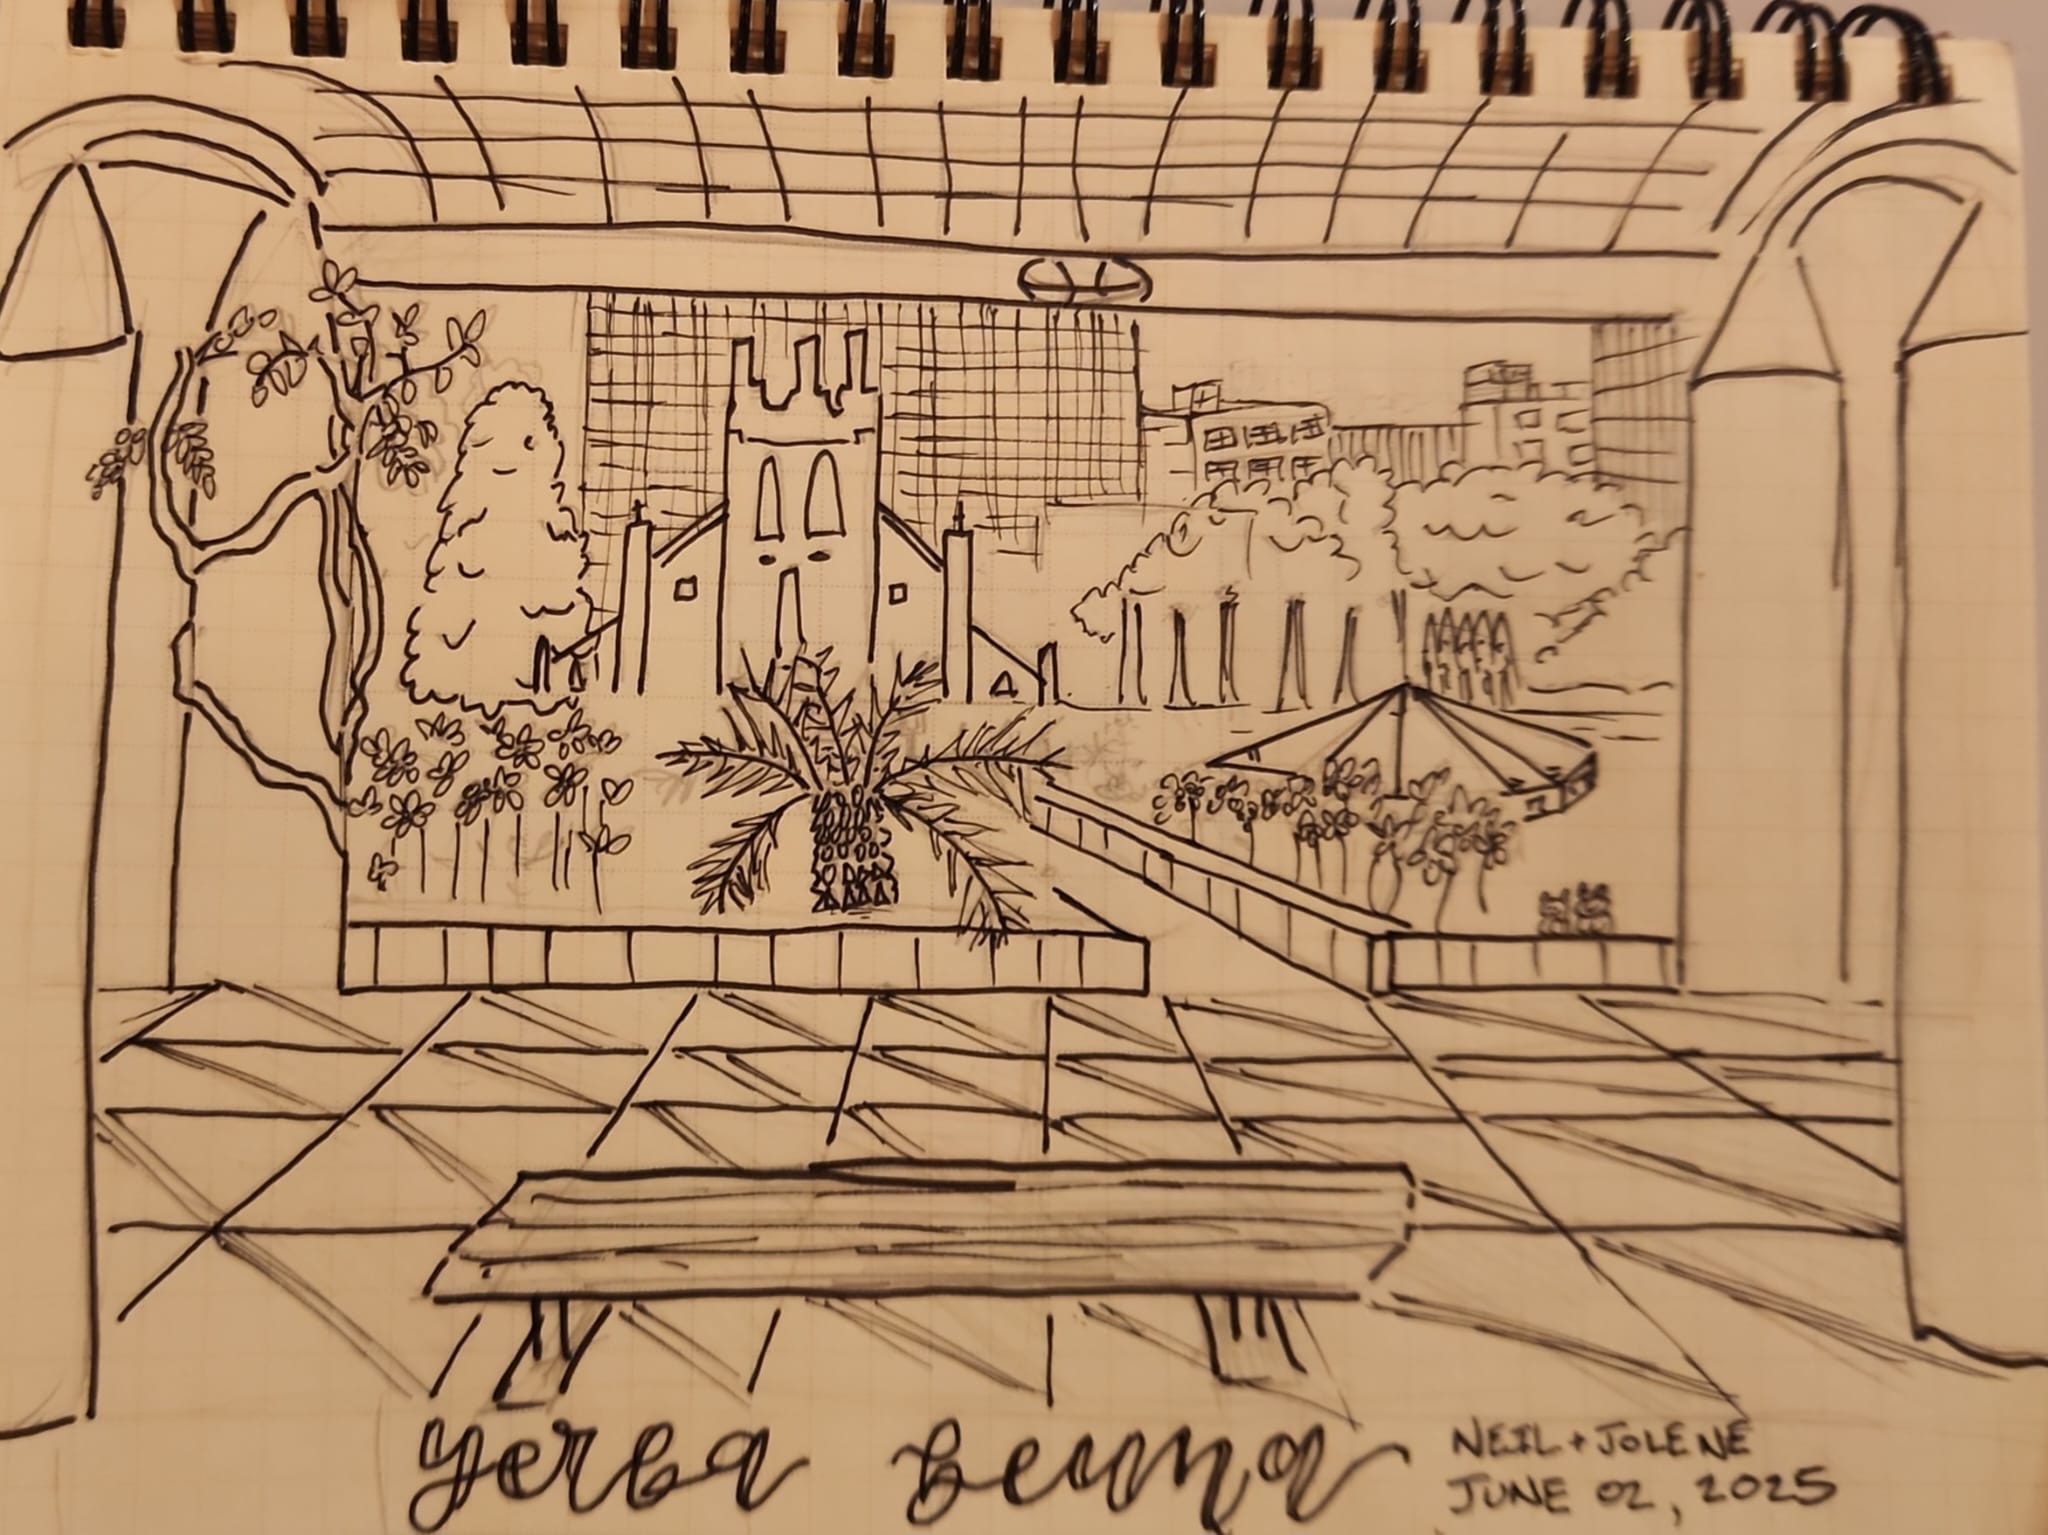 yerba buena
NEIL + JOLENE
JUNE 02, 2025